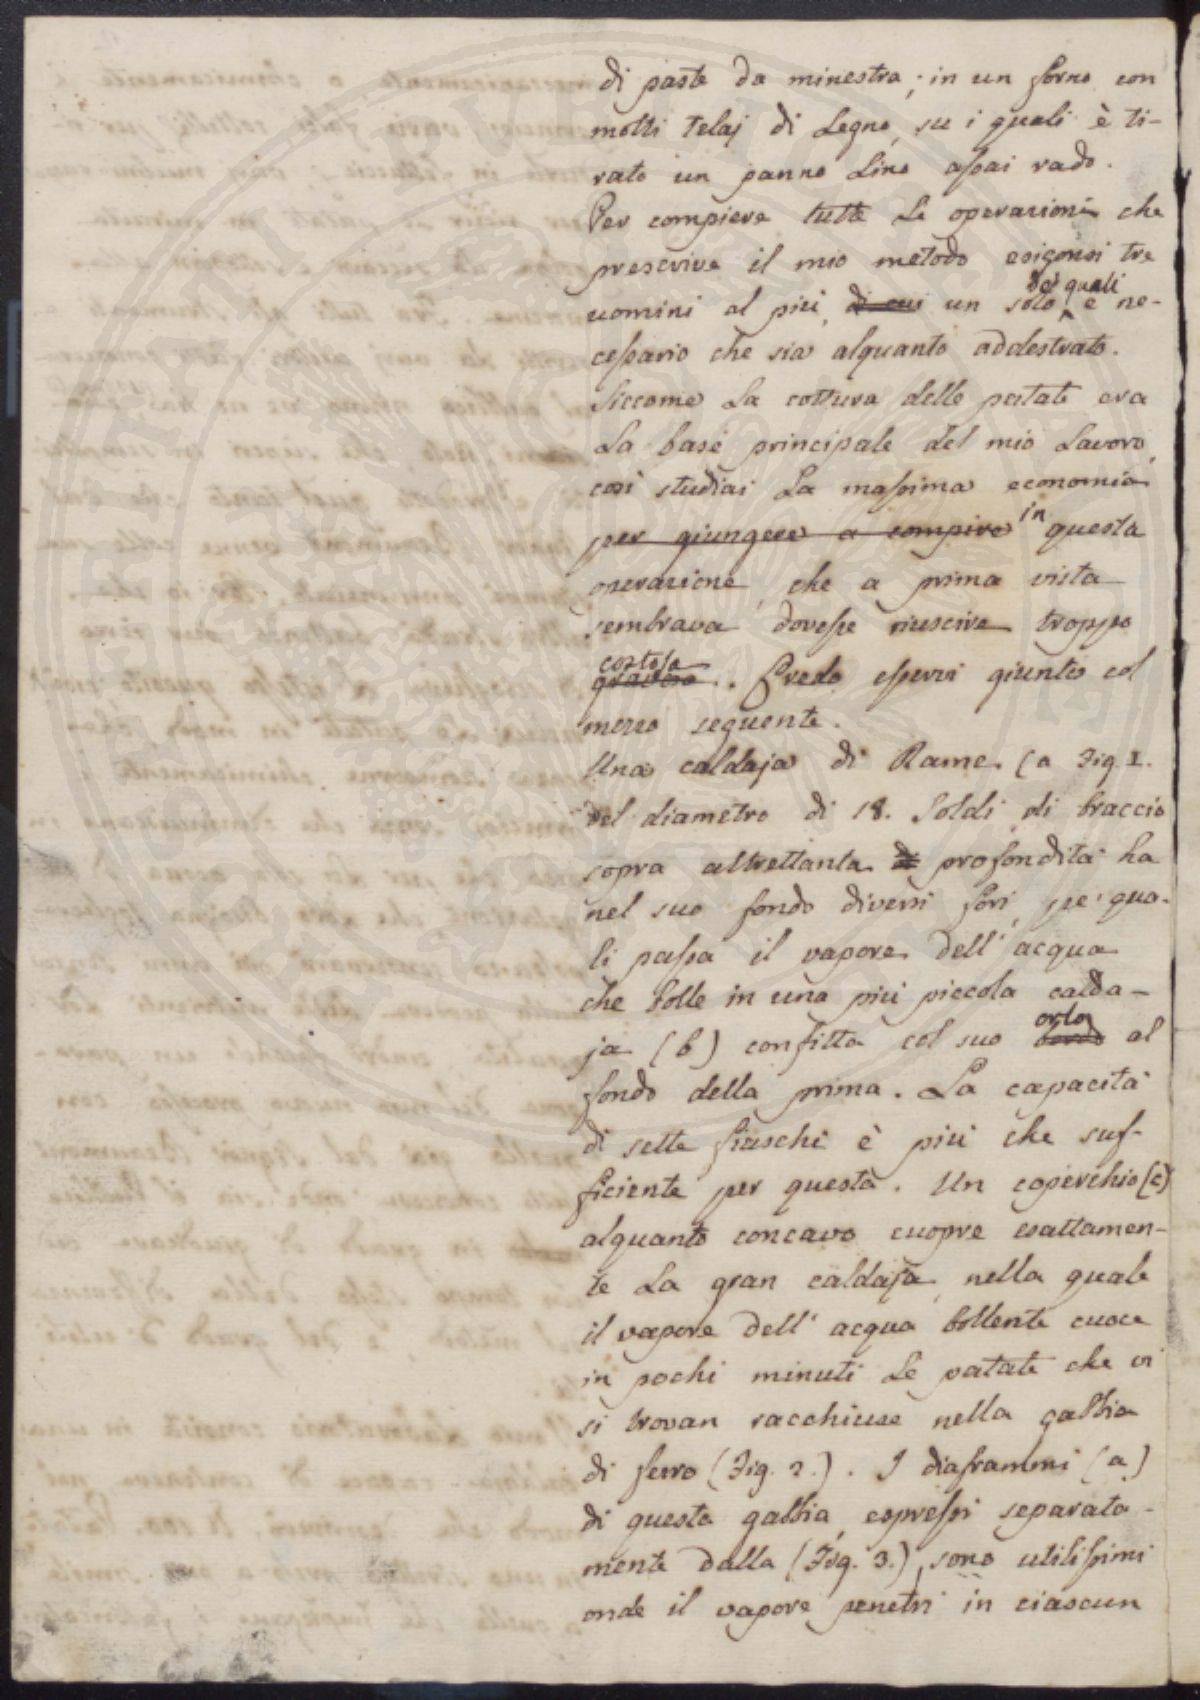 di paste da minestra; in un forno con
molti telaj di Legno, su i quali è ti-
rato un panno Lino assai rado.
Per compiere tutte Le operazioni che
prescrive il mio metodo esigonsi tre
uomini al più, di cui un solo de' quali è ne-
cessario che sia alquanto addestrato.
Siccome La cottura delle patate era
La base principale del mio Lavoro,
così studiai La massima economia
per giungere a compire in questa
operazione, che a prima vista
sembrava dovesse riuscire troppo
costosa
gravosa. Credo esservi giunto col
mezzo seguente.
Una caldaja di Rame (a Fig. 1.
del diametro di 18. Soldi di braccio
sopra altrettanta di profondità ha
nel suo fondo diversi fori, pe' qua-
li passa il vapore dell' acqua
che bolle in una più piccola calda-
ja (b) confitta col suo orlo bordo al
fondo della prima. La capacità
di sette fiaschi è più che suf-
ficiente per questa. Un coperchio (c)
alquanto concavo cuopre esattamen-
te La gran caldaja, nella quale
il vapore dell' acqua bollente cuoce
in pochi minuti Le patate che vi
si trovan racchiuse nella gabbia
di ferro (Fig. 2.). I diaframmi (a)
di questa gabbia, espressi separata-
mente dalla (Fig. 3.), sono utilissimi
onde il vapore penetri in ciascun